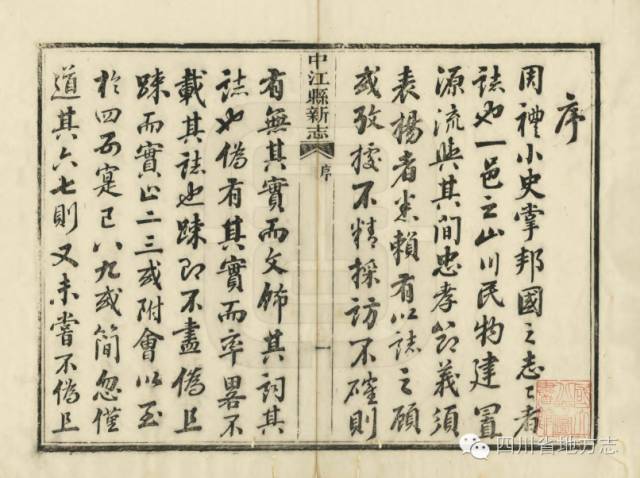 序
周禮小史掌邦國之志〻者
誌也一邑之山川民物建置
源流與其間忠孝節義須
表揚者悉賴有以誌之顧
或攷據不精採訪不確則
中江縣新志
序
一
有無其實而文飾其詞其
誌也偽有其實而率畧不
載其誌也踈即不盡偽且
踈而實止二三或附會以至
於四五寔已八九或簡忽僅
道其六七則又未嘗不偽且
四川省地方志